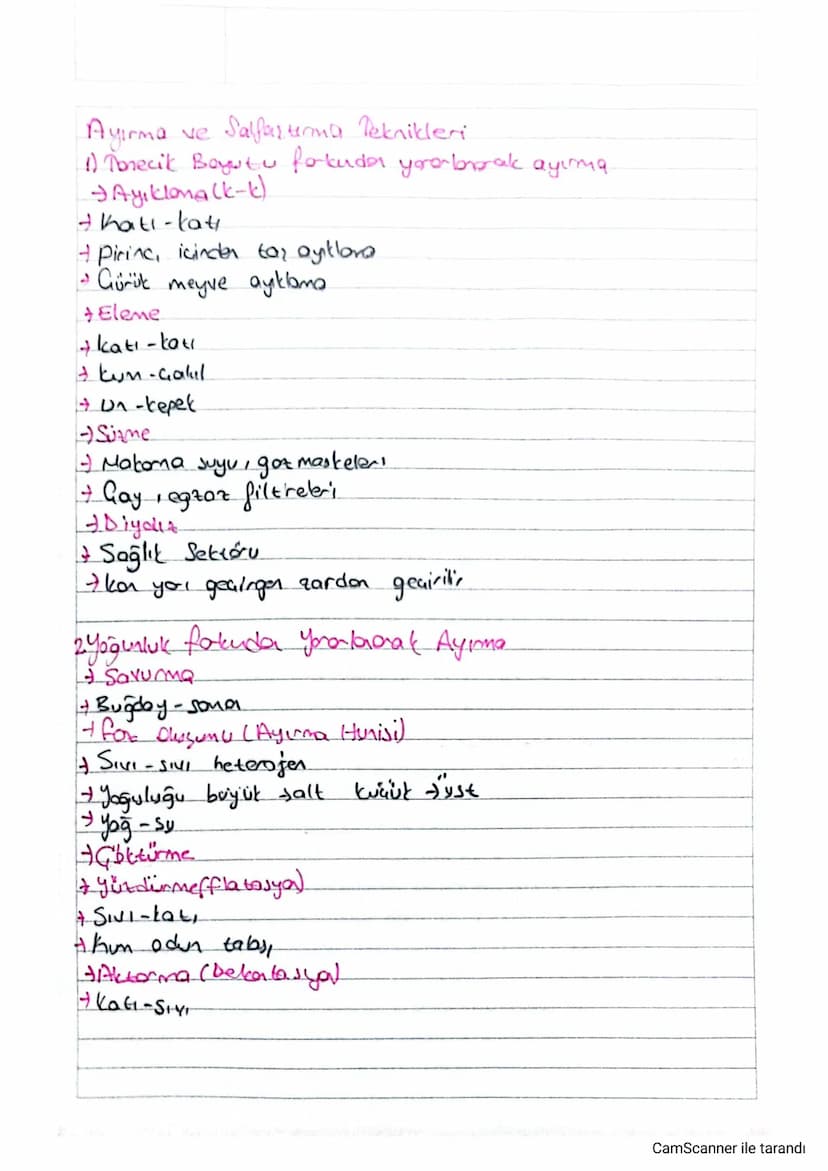 Ayırma ve Saflaştırma Teknikleri
1) Tanecik Boyutu farkından yararlanarak ayırma
→ Ayıklama (k-k)
→ Katı-katı
→ Pirinç içinden taş ayıklama
→ Çürük meyve ayıklama
→ Eleme
→ Katı-katı
→ kum-çakıl
→ un-kepek
→ Süzme
→ Makarna suyu, gaz maskeleri
→ Çay, egzoz filtreleri
→ Diyaliz
→ Sağlık Sektörü
→ kan yarı geçirgen zardan geçirilir
2 Yoğunluk farkından Yararlanarak Ayırma
→ Savurma
→ Buğday-saman
→ faz Oluşumu (Ayırma Hunisi)
→ Sıvı-sıvı heterojen
→ Yoğuluğu büyük →alt küçük →üst
→ Yağ-su
→ Çöktürme
→ Yüzdürme(fflatasyon)
→ Sıvı-katı
→ kum odun talaşı
→ Aktarma (Dekantasyon)
→ Katı-Sıvı
CamScanner ile tarandı